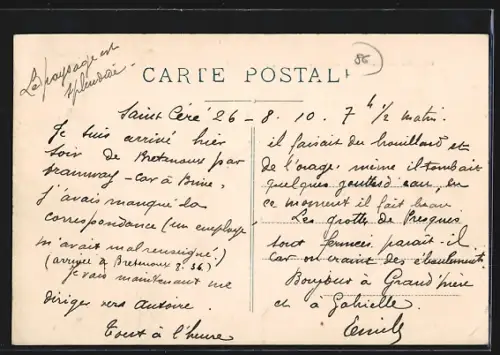 Le paysage est
splendide.
86
CARTE POSTALE
Saint Céré 26 - 8. 10. 7 h 1/2 matin.
Je suis arrivé hier
soir de Bretenoux par
tramway - car à Brive,
j'avais manqué la
correspondance (un employé
m'avait mal renseigné.)
(arrivée à Bretenoux 2.36)
Je vais maintenant me
diriger vers Autoire.
Tout à l'heure
il faisait du brouillard et
de l'orage. même il tombait
quelques gouttes d'eau, en
ce moment il fait beau
Les grottes de Presques
sont fermées parait-il
car on craint des éboulements
Bonjour à Grand'père
et à Gabrielle.
Emile